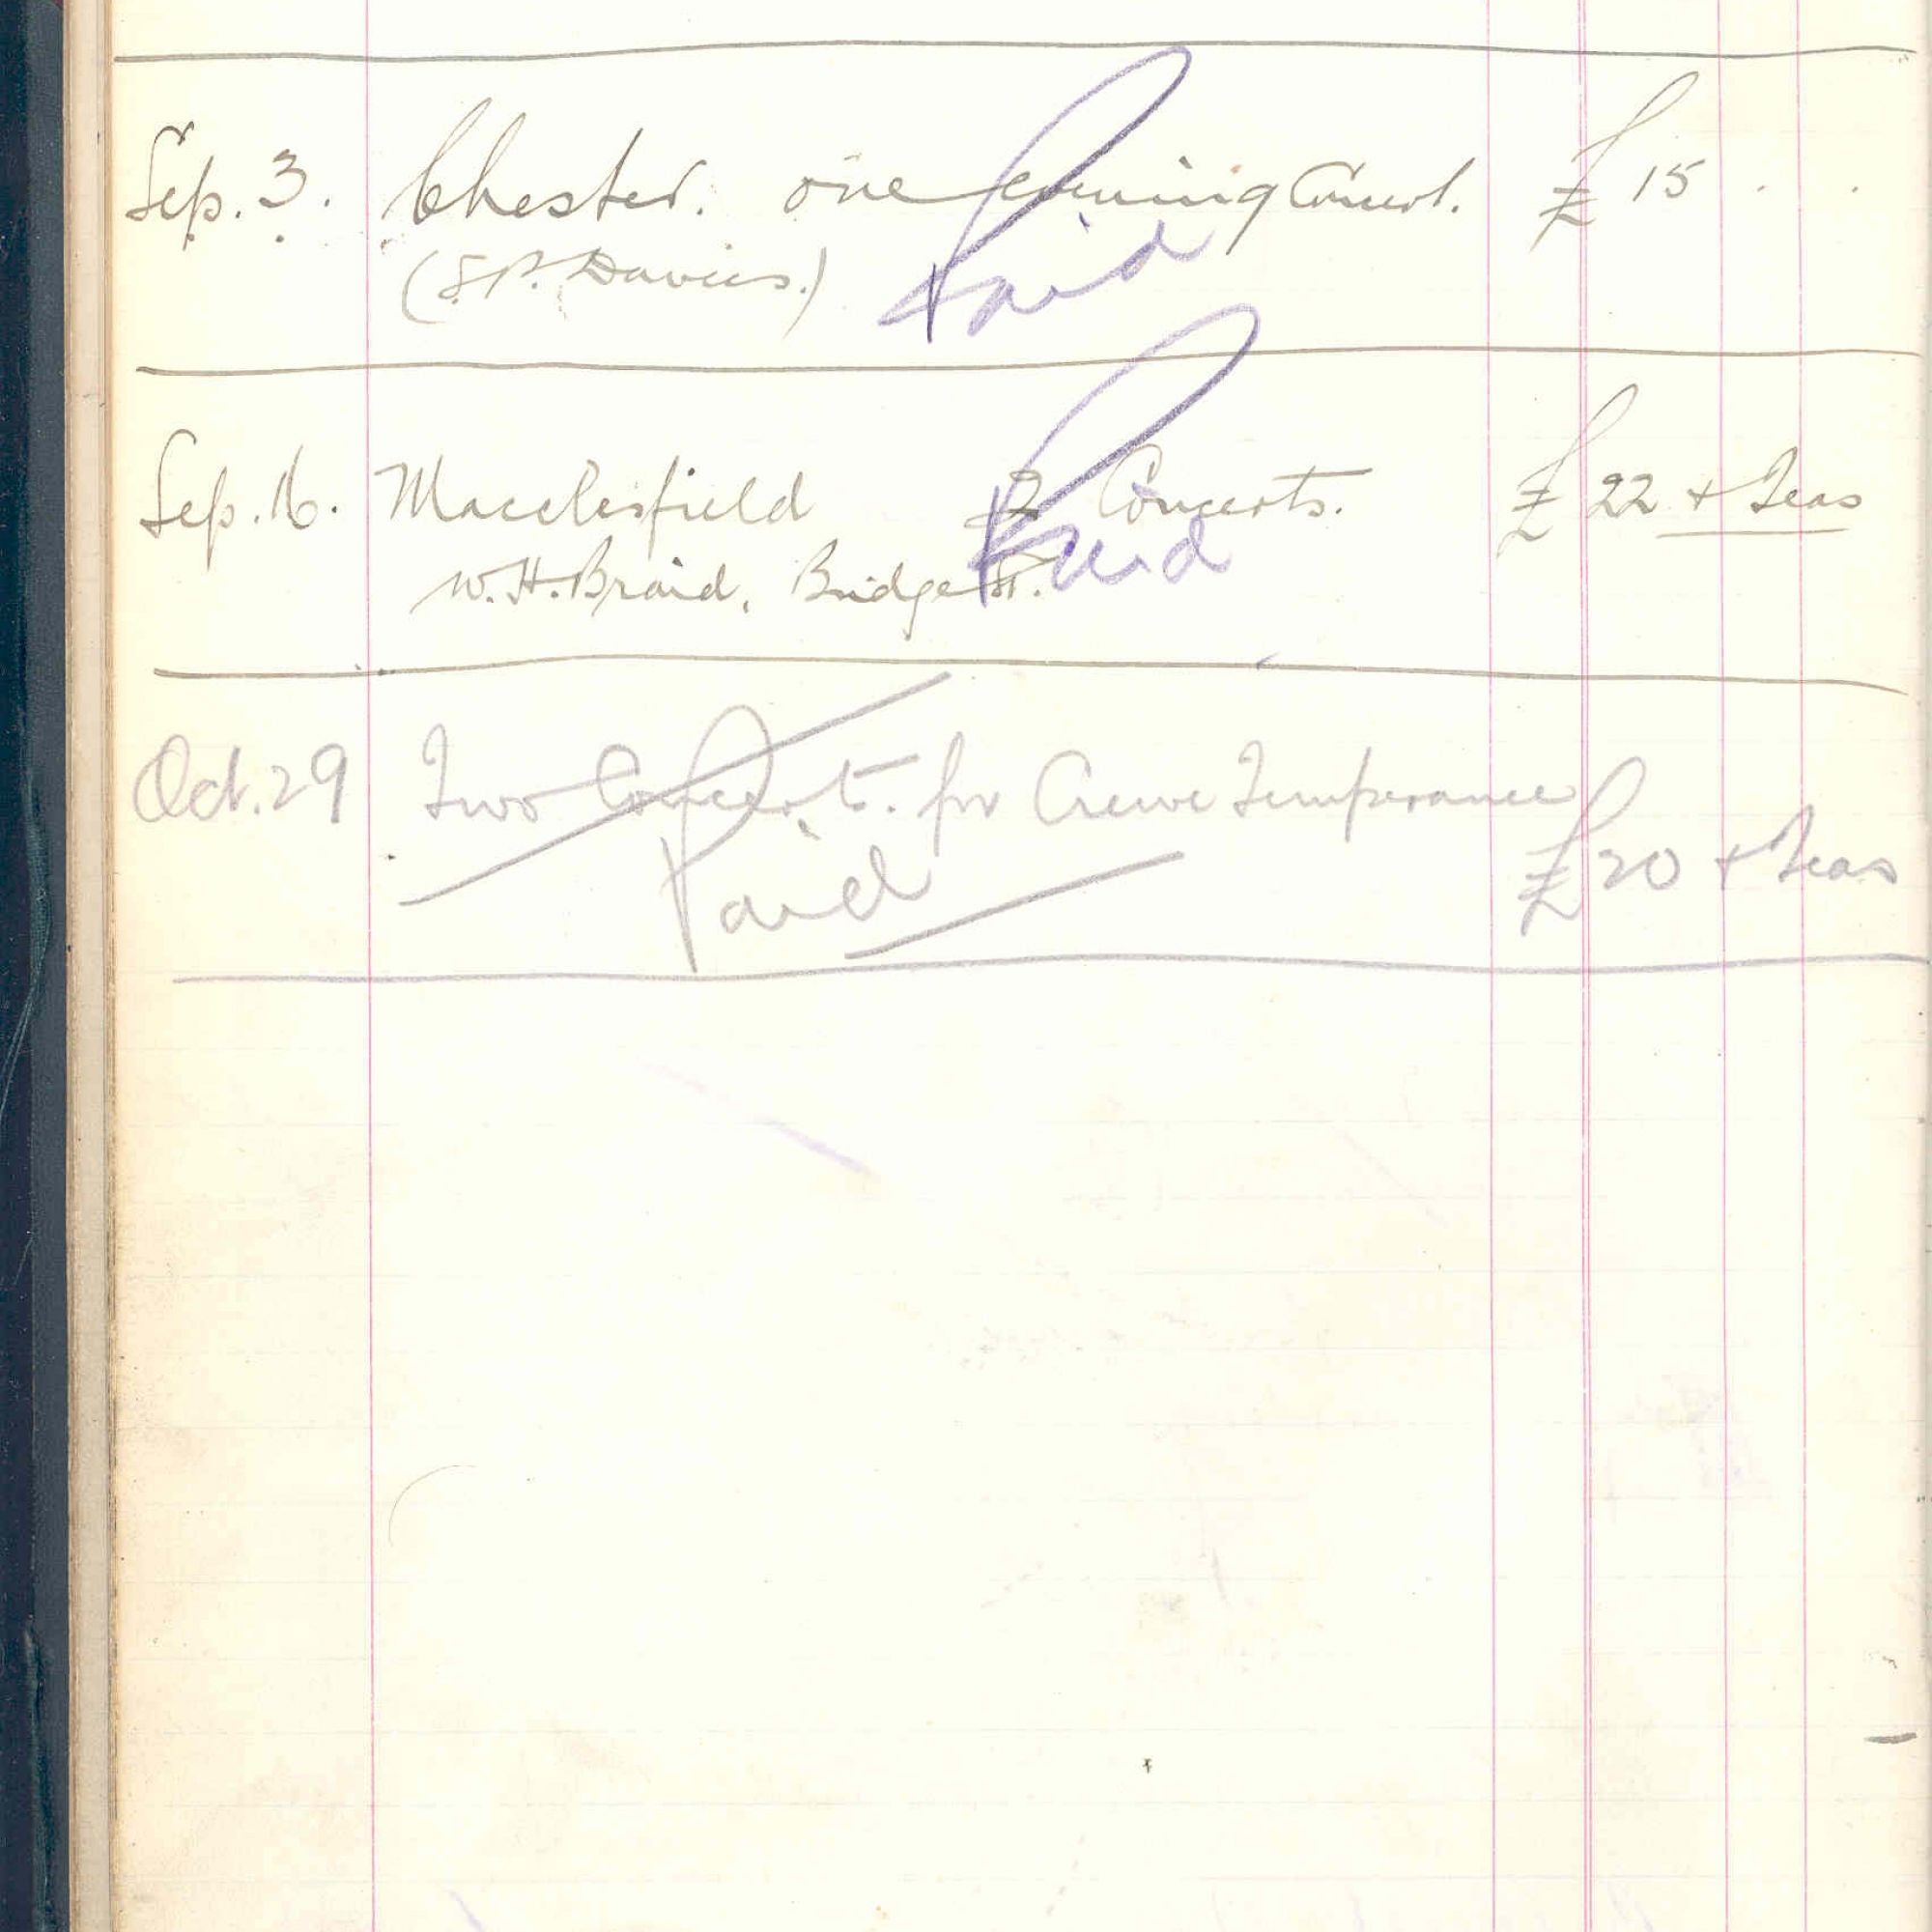 Sep. 3. Chester. one evening Concert. £ 15 . .
(S.P. Davies.) Paid
Sep. 16. Macclesfield 2 Concerts. £ 22 + Teas
W. H. Braid, Bridge St. Paid
Oct. 29 Two Concerts. for Crewe Temperance
Paid £20 + Teas